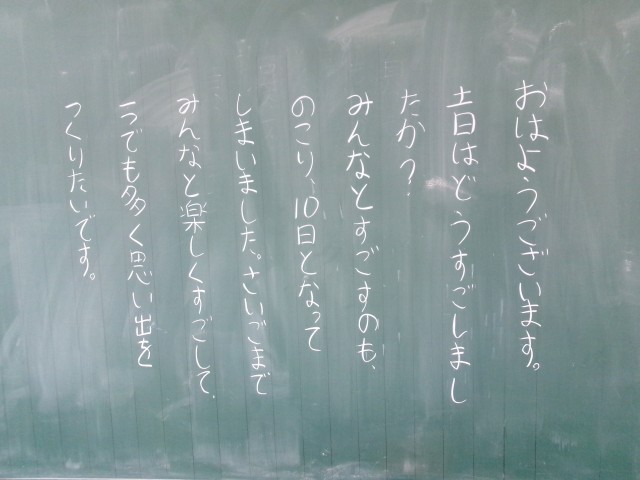 おはようございます。
土日はどうすごしまし
たか？
みんなとすごすのも、
のこり、10日となって
しまいました。さいごまで
みんなと楽しくすごして、
一つでも多く思い出を
つくりたいです。